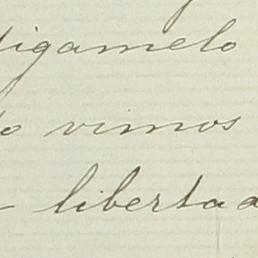 digamelo
lo vimos
- libertad